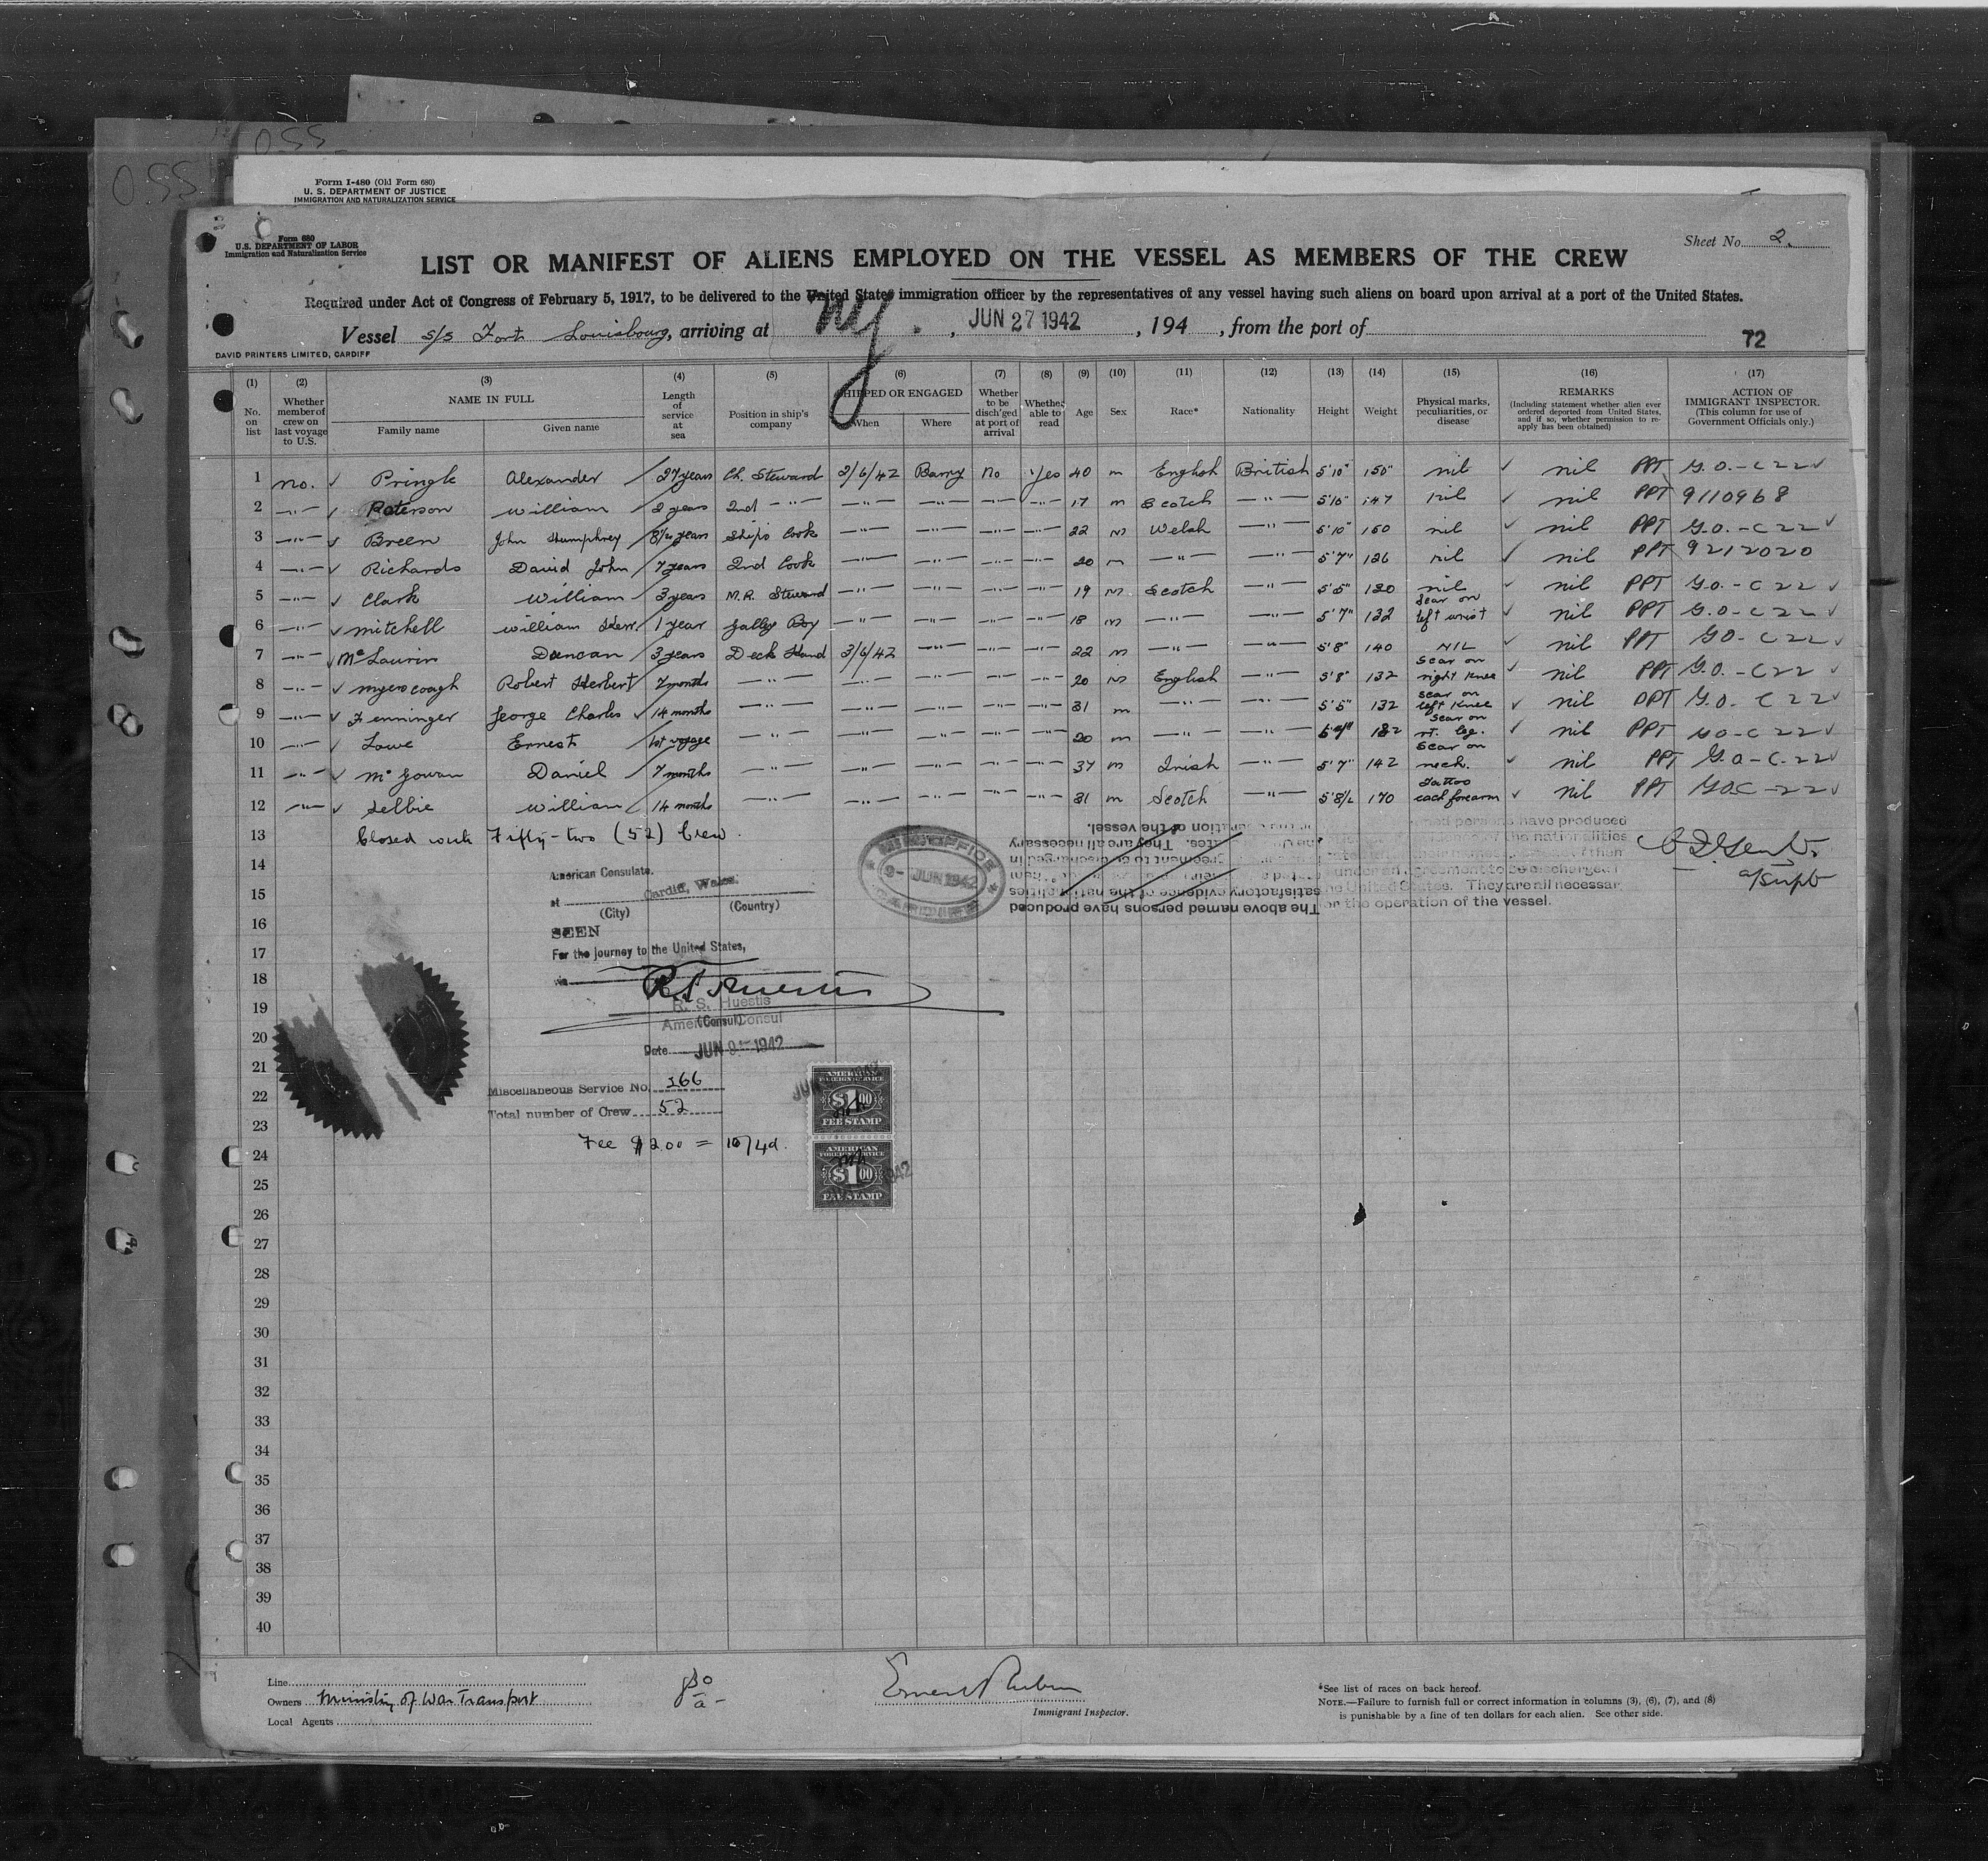 OSS
OSS
Form I-480 (Old Form 680)
U. S. DEPARTMENT OF JUSTICE
IMMIGRATION AND NATURALIZATION SERVICE
Form 680
U.S. DEPARTMENT OF LABOR
Immigration and Naturalization Service
Sheet No. 2.
LIST OR MANIFEST OF ALIENS EMPLOYED ON THE VESSEL AS MEMBERS OF THE CREW
Required under Act of Congress of February 5, 1917, to be delivered to the United States immigration officer by the representatives of any vessel having such aliens on board upon arrival at a port of the United States.
Vessel s/s Fort Louisbourg, arriving at NY. , JUN 27 1942 , 194 , from the port of
DAVID PRINTERS LIMITED, CARDIFF
72
(1) (2) (3) (4) (5) (6) (7) (8) (9) (10) (11) (12) (13) (14) (15) (16) (17)
No. on list
Whether member of crew on last voyage to U.S.
NAME IN FULL
Family name Given name
Length of service at sea
Position in ship's company
SHIPPED OR ENGAGED
When Where
Whether to be disch'ged at port of arrival
Whether able to read
Age
Sex
Race*
Nationality
Height
Weight
Physical marks, peculiarities, or disease
REMARKS
(Including statement whether alien ever ordered deported from United States, and if so, whether permission to re-apply has been obtained)
ACTION OF IMMIGRANT INSPECTOR.
(This column for use of Government Officials only.)
1 no. ✓ Pringle Alexander 27 years Ch. Steward 2/6/42 Barry No Yes 40 m English British 5'10" 150" nil ✓ nil PPT G.O.-C22 ✓
2 —"— ✓ Paterson William 2 years 2nd —"— —"— —"— —"— —"— 17 m Scotch —"— 5'10" 147 nil ✓ nil PPT 9110968
3 —"— ✓ Breen John Humphrey 8½ years Ships Cook —"— —"— —"— —"— 22 m Welsh —"— 5'10" 150 nil ✓ nil PPT G.O.-C22 ✓
4 —"— ✓ Richards David John 7 years 2nd Cook —"— —"— —"— —"— 20 m —"— —"— 5'7" 126 nil ✓ nil PPT 9212020
5 —"— ✓ Clark William 3 years M.R. Steward —"— —"— —"— —"— 19 m Scotch —"— 5'5" 120 nil ✓ nil PPT G.O.-C22 ✓
6 —"— ✓ Mitchell William Kerr 1 year Galley Boy —"— —"— —"— —"— 18 m —"— —"— 5'7" 132 Scar on left wrist ✓ nil PPT G.O-C22 ✓
7 —"— ✓ McLaurin Duncan 3 years Deck Hand 3/6/42 —"— —"— —"— 22 m —"— —"— 5'8" 140 NIL ✓ nil PPT GO-C22 ✓
8 —"— ✓ Myerscough Robert Herbert 7 months —"— —"— —"— —"— —"— 20 m English —"— 5'8" 132 Scar on right knee ✓ nil PPT G.O.-C22 ✓
9 —"— ✓ Fenninger George Charles ✓ 14 months —"— —"— —"— —"— —"— 31 m —"— —"— 5'5" 132 scar on left knee ✓ nil PPT G.O. C22 ✓
10 —"— ✓ Lowe Ernest 1st voyage —"— —"— —"— —"— —"— 20 m —"— —"— 182 Scar on rt. leg. ✓ nil PPT GO-C22 ✓
11 —"— ✓ McGowan Daniel 7 months —"— —"— —"— —"— —"— 37 m Irish —"— 5'7" 142 Scar on neck. ✓ nil PPT G.O-C-22 ✓
12 —"— ✓ Selbie William 14 months —"— —"— —"— —"— —"— 31 m Scotch —"— 5'8½ 170 Tattoo each forearm ✓ nil PPT GOC-22 ✓
13 Closed with Fifty-two (52) Crew.
14
15
16
17
18
19
20
21
22
23
24
25
26
27
28
29
30
31
32
33
34
35
36
37
38
39
40
American Consulate.
at Cardiff, Wales.
(City) (Country)
SEEN
For the journey to the United States,
via
R. S. Huestis
R. S. Huestis
American Consul
(Consul)
Date JUN 9 - 1942
9- JUN 1942
The above named persons have produced
satisfactory evidence of the nationalities
They are all necessary
for the operation of the vessel.
under an agreement to be discharged in
the United States. They are all necessary
for the operation of the vessel.
a/Supt
Miscellaneous Service No. 166
Total number of Crew 52
Fee $2.00 = 10/4d.
AMERICAN
FOREIGN SERVICE
$1.00
FEE STAMP
AMERICAN
FOREIGN SERVICE
$1.00
FEE STAMP
1942
Line
Owners Ministry of War Transport
Local Agents
Ernest Rubin
Immigrant Inspector.
*See list of races on back hereof.
NOTE.—Failure to furnish full or correct information in columns (3), (6), (7), and (8)
is punishable by a fine of ten dollars for each alien. See other side.